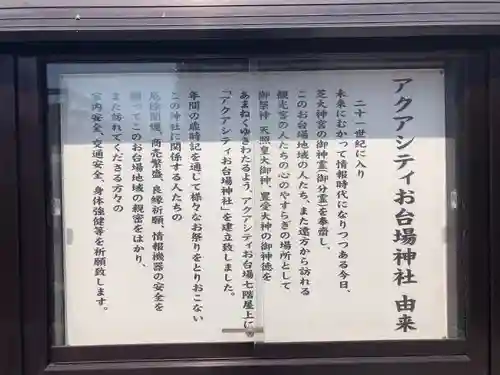 アクアシティお台場神社 由来
二十一世紀に入り
未来にむかって情報時代になりつつある今日、
芝大神宮の御神霊(御分霊)を奉斎し、
このお台場地域の人たち、また遠方から訪れる
観光客の人たちの心のやすらぎの場所として
御祭神 天照皇大御神、豊受大神の御神徳を
あまねくゆきわたるよう、アクアシティお台場七階屋上に
「アクアシティお台場神社」を建立致しました。
年間の歳時記を通して様々なお祭りをとりおこない
この神社に関係する人たちの
厄除開運、商売繁盛、良縁祈願、情報機器の安全を
願ってこのお台場地域の親密をはかり、
また訪れてくださる方々の
家内安全、交通安全、身体強健等を祈願致します。